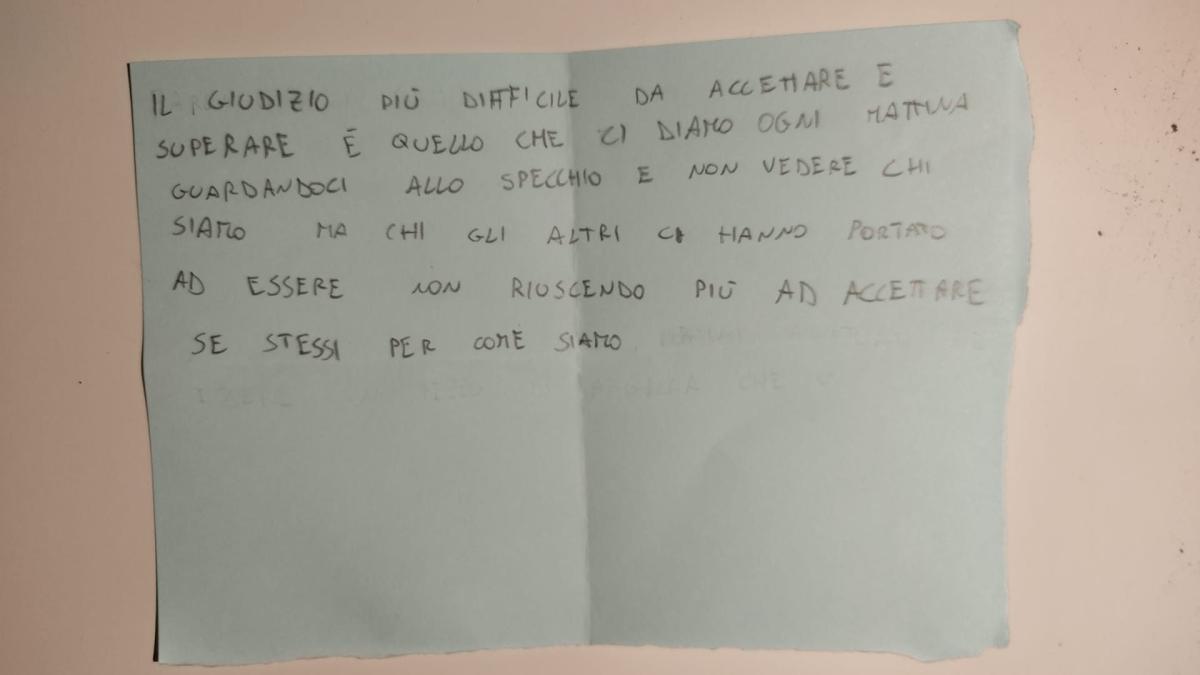 IL GIUDIZIO PIÙ DIFFICILE DA ACCETTARE E
SUPERARE È QUELLO CHE CI DIAMO OGNI MATTINA
GUARDANDOCI ALLO SPECCHIO E NON VEDERE CHI
SIAMO MA CHI GLI ALTRI CI HANNO PORTATO
AD ESSERE NON RIUSCENDO PIÙ AD ACCETTARE
SE STESSI PER COME SIAMO
CHE